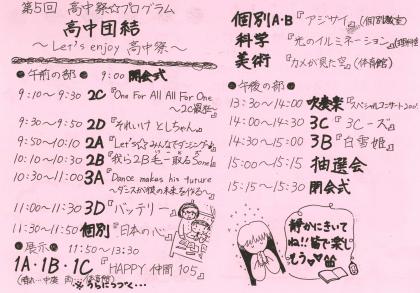 第5回 高中祭☆プログラム
高中団結
～Let's enjoy 高中祭～
●午前の部● 9:00 開会式
9:10～9:30 2C『One For All All For One
～2C最強～』
9:30～9:50 2D『それいけ としちゃん』
9:50～10:10 2A『Let's☆みんなでダンシング』
10:10～10:30 2B『我ら2B毛－取るSone』
10:30～11:00 3A『Dance makes his future
～ダンスが彼の未来を作る～』
11:00～11:30 3D『バッテリー』
11:30～11:50 個別『日本の心』
●展示● 11:50～13:30
1A・1B・1C『HAPPY 仲間 105』
※うらにつづく…
個別A・B『アジサイ』(個別教室)
科学『光のイルミネーション』
美術『カメが見た空』(体育館)
●午後の部●
13:30～14:00 吹奏楽『スペシャルコンサート200
14:00～14:30 3C『3C－ズ』
14:30～15:00 3B『白雪姫』
15:00～15:15 抽選会
15:15～15:30 閉会式
静かにきいて
ね!!皆で楽し
もう♥